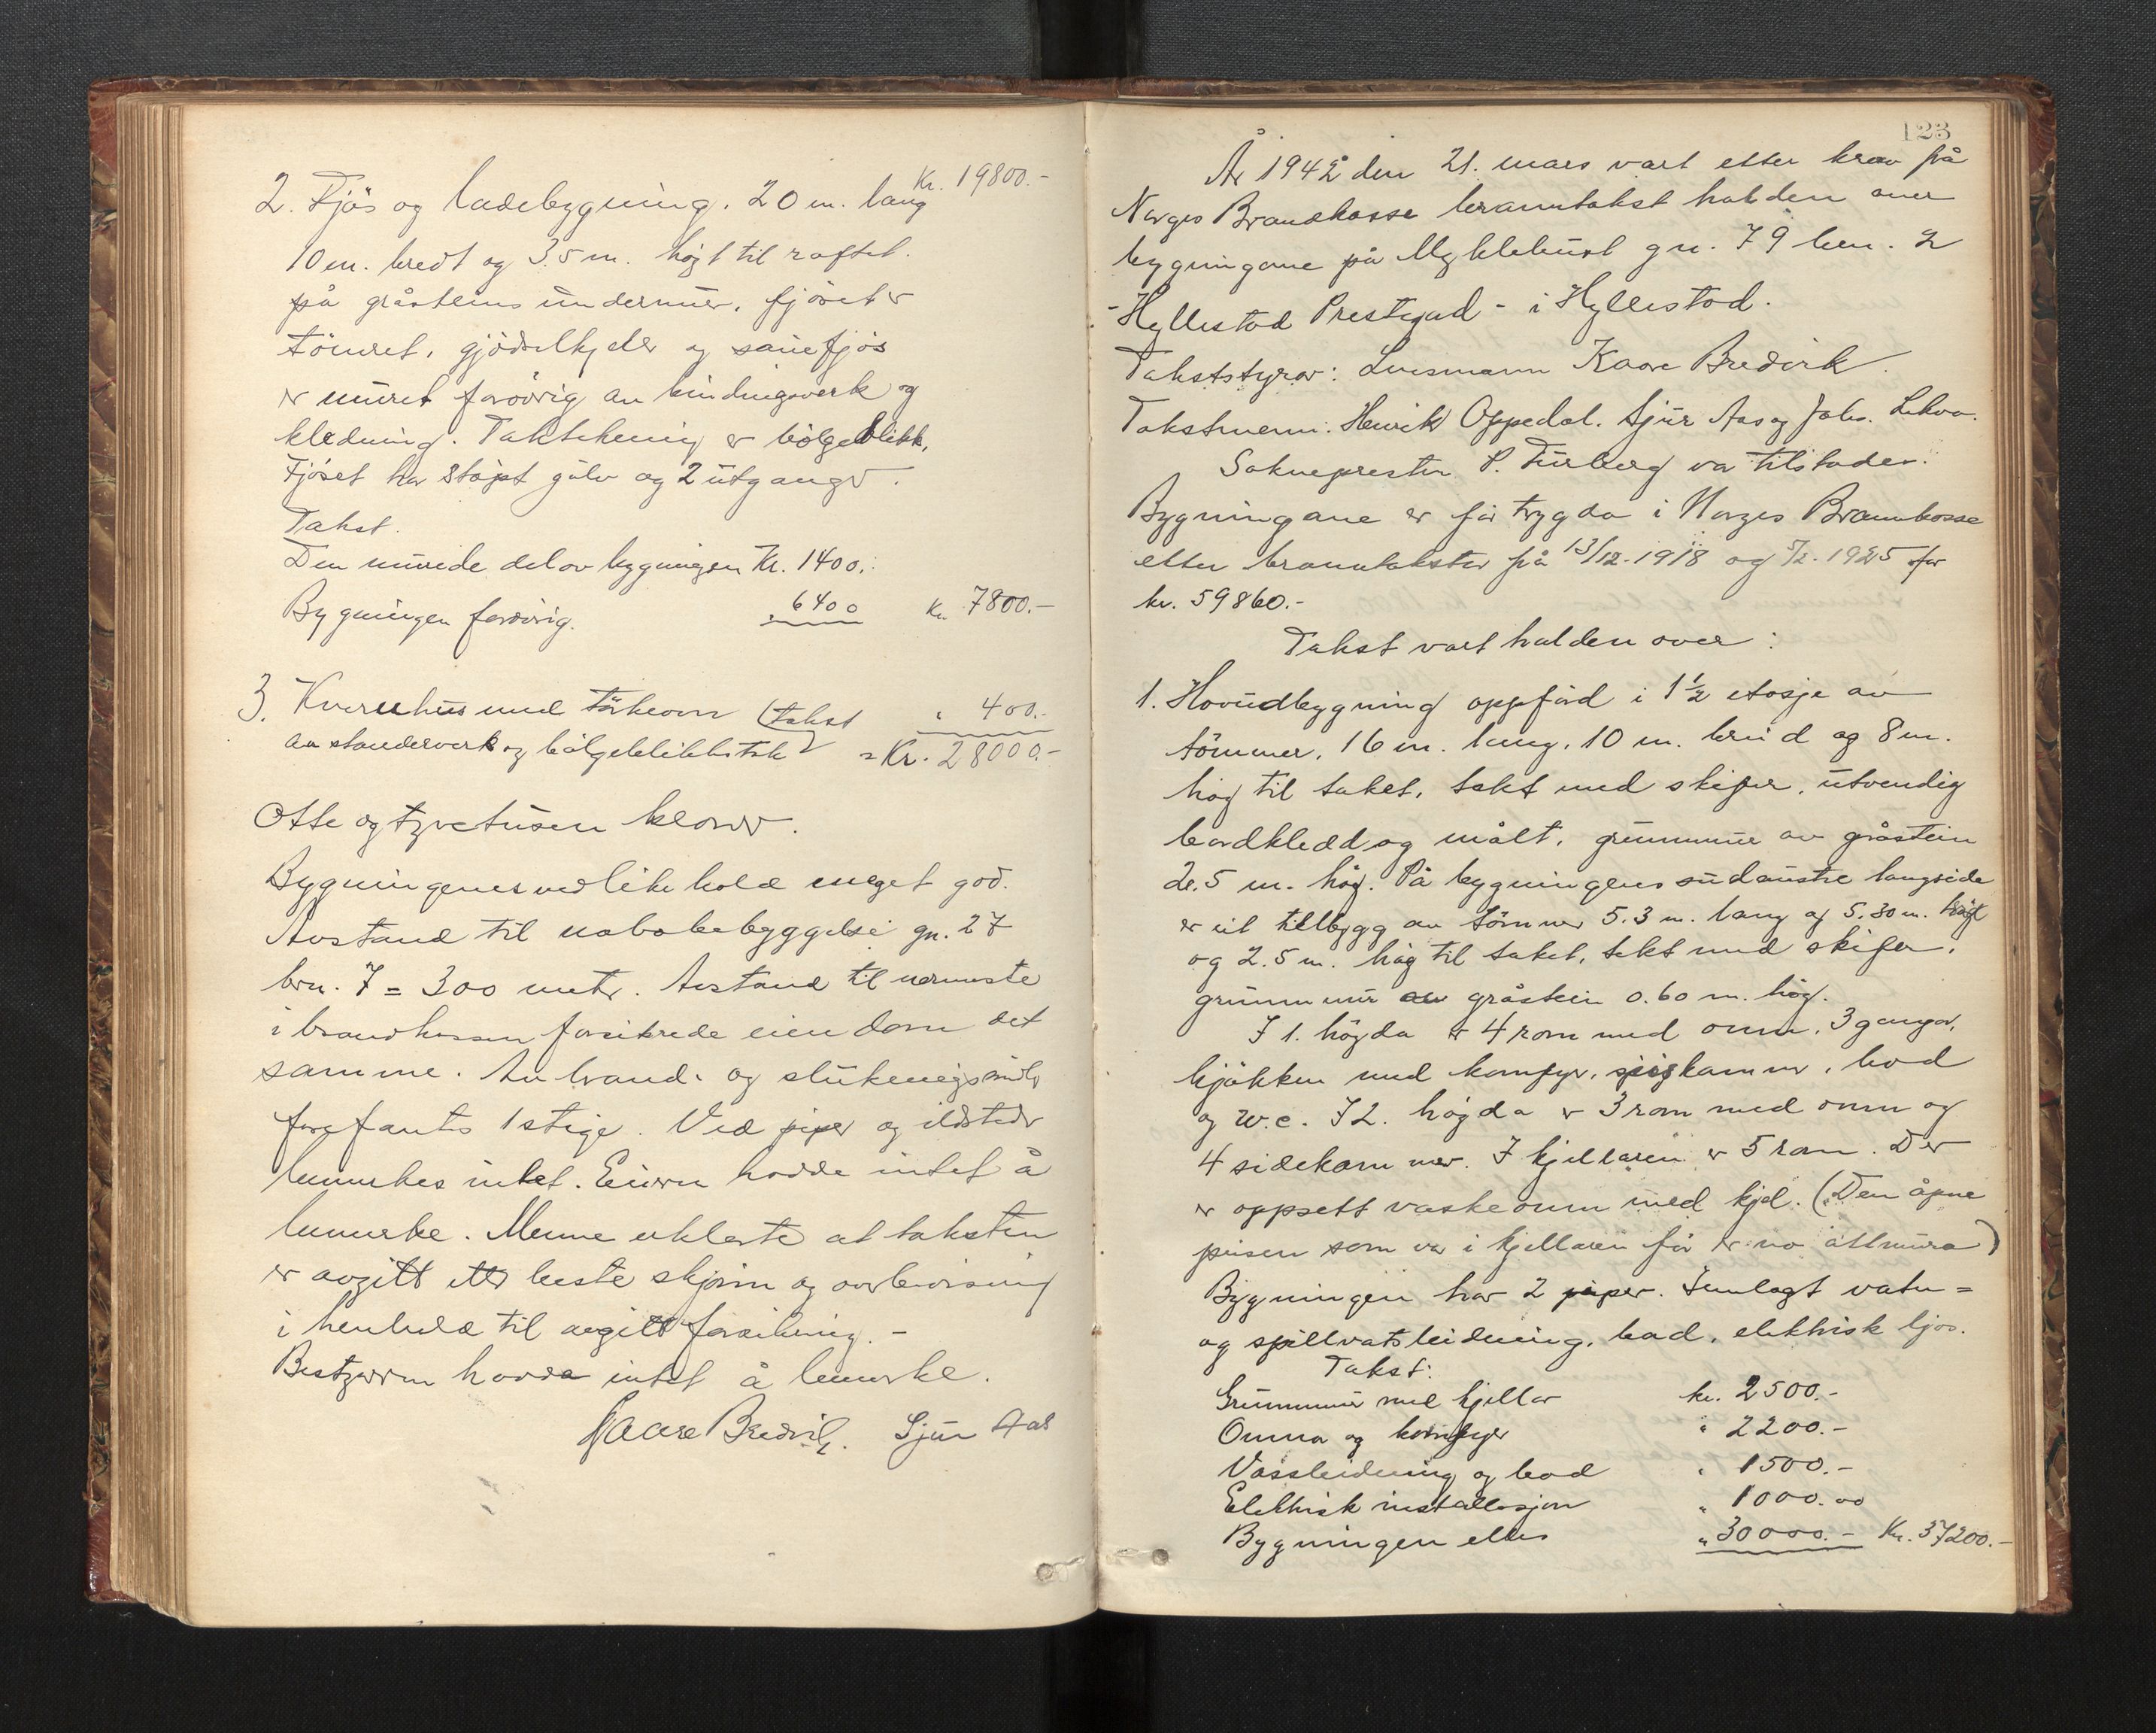 Kr. 19800.-
2. Fjös og ladebygning. 20 m. lang
10 m. bredt og 3.5 m. högt til raftet.
på gråsteins undermur. fjöset er
tömret. gjödselkjeler og sauefjös
er muret forövrig av bindingsverk og
kledning. Taktekning er bölgeblikk.
Fjöset har stöpt gulv og 2 utganger.
Takst.
Den murede del av bygningen Kr. 1400.-
Bygningen forövrig. " 6400 Kr. 7800.-
3. Kvernhus med törkeovn (takst " 400.-
av standerverk og bölgeblikktak) = Kr. 28000.-
Otte og tyvetusen kroner.
Bygningenes vedlikehold meget god.
Avstand til nabobebyggelse gn. 27
brn. 7 = 300 meter. Avstand til nermeste
i brandkassen forsikrede eiendom det
samme. Av brand- og slukningsmidler
forefantes 1 stige. Ved piper og ildsteder
bemerkes intet. Eieren hadde intet å
bemerke. Menne erklerte at taksten
er avgitt etter beste skjönn og overbevisning
i henhold til avgitt forsikring. -
Bestyreren hadde intet å bemerke.
Kaare Bredvik. Sjur Aas
123
År 1942 den 21. mars vart etter krav på
Norges Brandkasse branntakst halden over
bygningane på Myklebust gn. 79 brn. 2
- Hyllestad Prestegard - i Hyllestad.
Takststyrar: Lensmann Kaare Bredvik.
Takstmenn: Henrik Oppedal. Sjur Aas og Johs. Lekva.
Soknepresten P. Furberg var tilstades.
Bygningane er för trygda i Norges Brannkasse
etter branntakster på 13/12-1918 og 5/2-1925 for
kr. 59860.-
Takst vart halden over:
1. Hovudbygning oppförd i 1½ etasje av
tömmer. 16 m. lang. 10 m. breid og 8 m.
hög til taket, tekt med skifer, utvendig
bordkledd og målt, grunnmur av gråstein
2.5 m. hög. På bygningens sudaustre langside
er eit tilbygg av tömmer 5.3 m. lang og 5.30 m.
og 2.5 m. hög til taket, tekt med skifer,
grunnmur av gråstein 0.60 m. hög.
I 1. högda er 4 rom med omn, 3 ganger,
kjökken med komfyr, spiskammer, bod
og w.c. I 2. högda er 3 rom med omn og
4 sidekammer. I kjellaren er 5 rom. Der
er oppsett vaskeomn med kjel. (Den åpne
peisen som var i kjellaren för er no attmura)
Bygningen har 2 piper. Innlagt vatn=
og spillvatsleidning, bad, elektrisk ljos.
Takst:
Grunnmur med kjellar kr. 2500.-
Omna og komfyr " 2200.-
Vassleidning og bad " 1500.-
Elektrisk installasjon " 1000.00
Bygningen elles " 30000.- Kr. 37200.-